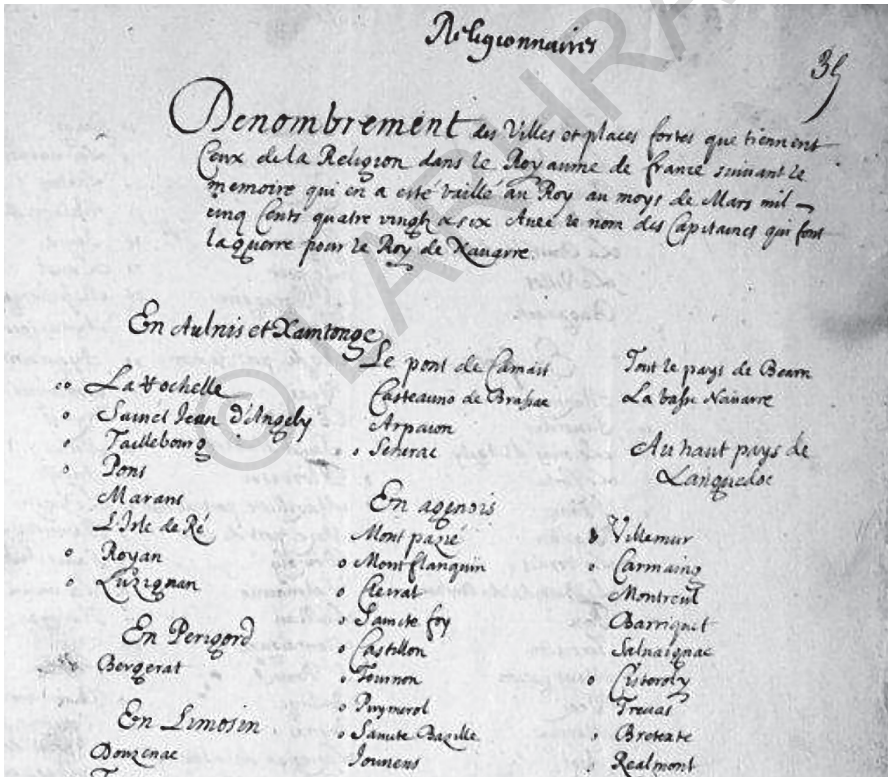 Religionnaires
35
Denombrement des Villes et places fortes que tiennent
Ceux de la Religion dans le Royaume de france suivant le
memoire qui en a esté baillé au Roy au moys de Mars mil
cinq Cents quatre vingts & six Avec le nom des Capitaines qui font
la guerre pour le Roy de Navarre
En Aulnis et Xaintonge
La Rochelle
Sainct Jean d'Angely
Taillebourg
Pons
Marans
L'Isle de Ré
Royan
Luzignan
En Perigord
Bergerat
En Limosin
Donzenac
Le pont de Camarés
Casteauno de Brassac
Arpaion
Senerac
En agenois
Mont pazié
Mont flanquin
Clerat
Saincte foy
Castillon
Tournon
Puymerol
Saincte Bazille
Tout le pays de Bearn
La basse Navarre
Au haut pays de
Languedoc
Villemur
Carmaing
Montreul
Barriquet
Salvaignac
Trevas
Bretexte
Realmont
© LA PHRA